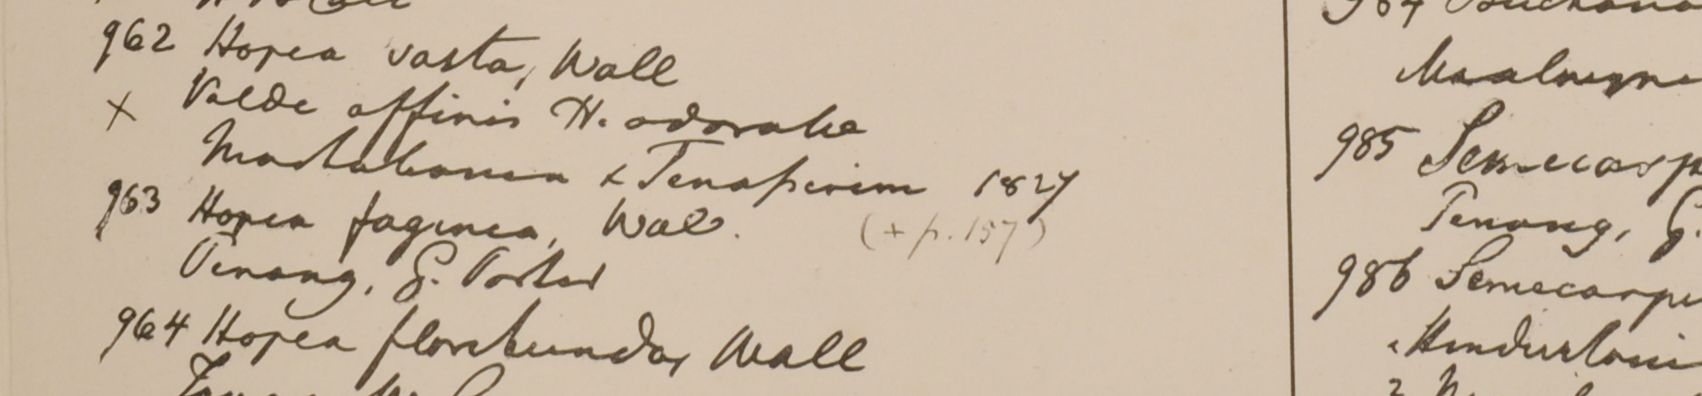 962 Hopea vasta, Wall
x Valde affinis H. odorata
Martabania & Tenasserim 1827
963 Hopea faginea, Wal.
(+ p. 157)
Penang, G. Porter
964 Hopea floribunda, Wall
985 Semecarp
Penang, G.
986 Semecarpu